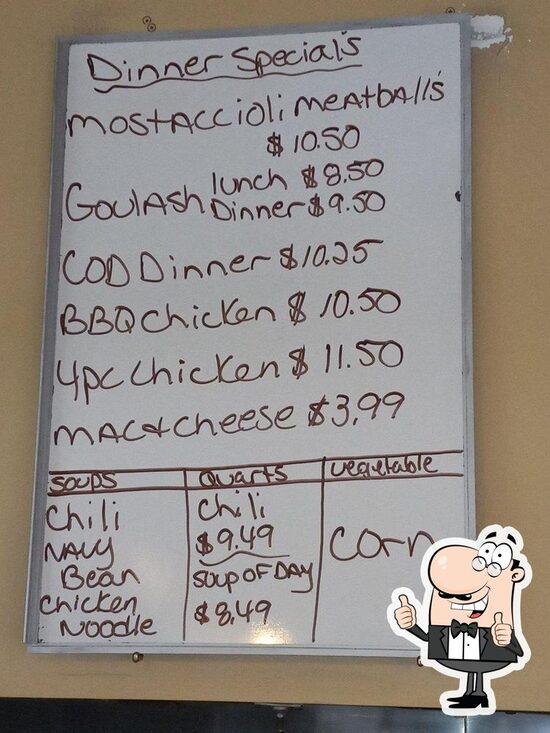 Dinner Specials
mostAccioli meAtbAlls
$ 10.50
GoulAsh lunch $8.50
Dinner $9.50
COD Dinner $10.25
BBQ chicken $ 10.50
4pc chicken $ 11.50
mAc+cheese $3.99
soups Quarts vegetable
Chili
NAvy
Bean
chicken
Noodle
Chili
$9.49
soup oF DAy
$8.49
corn